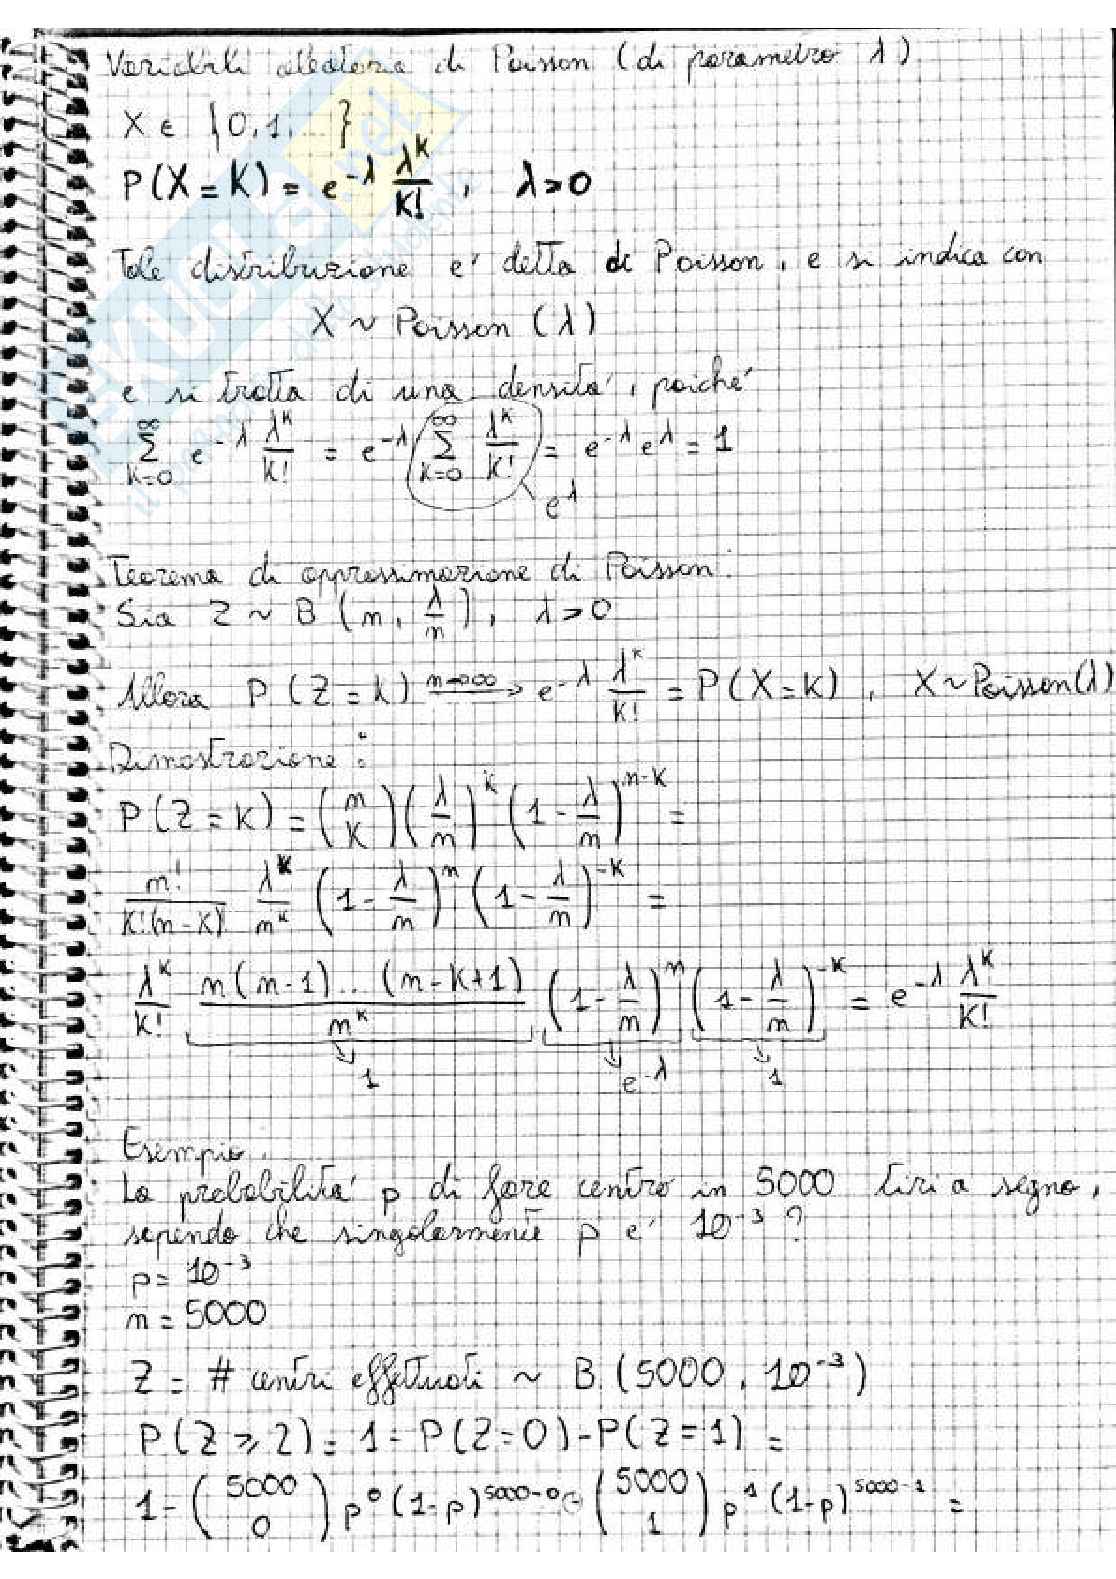 Variabili aleatorie di Poisson (di parametro λ)
X ∈ {0,1,...}
P(X=K) = e^-λ λ^K/K! , λ>0
Tale distribuzione e' detta di Poisson, e si indica con
X ~ Poisson (λ)
e si tratta di una densita', poiche'
∑_{K=0}^∞ e^-λ λ^K/K! = e^-λ ∑_{K=0}^∞ λ^K/K! = e^-λ e^λ = 1
e^λ
Teorema di approssimazione di Poisson:
Sia Z ~ B (n, λ/n), λ>0
Allora P (Z=k) n→∞ → e^-λ λ^K/K! = P(X=K), X~Poisson(λ)
Dimostrazione:
P(Z=K) = (n K) (λ/n)^K (1-λ/n)^{n-K} =
n!/K!(n-K)! λ^K/n^K (1-λ/n)^n (1-λ/n)^-K =
λ^K/K! n(n-1)...(n-K+1)/n^K (1-λ/n)^n (1-λ/n)^-K = e^-λ λ^K/K!
↘ 1 ↘ e^-λ ↘ 1
Esempio.
La probabilita' p di fare centro in 5000 tiri a segno,
sapendo che singolarmente p e' 10^-3 ?
p= 10^-3
n = 5000
Z = # centri effettuati ~ B (5000, 10^-3)
P(Z≥2) = 1 - P(Z=0) - P(Z=1) =
1 - (5000 0) p^0 (1-p)^{5000-0} - (5000 1) p^1 (1-p)^{5000-1} =